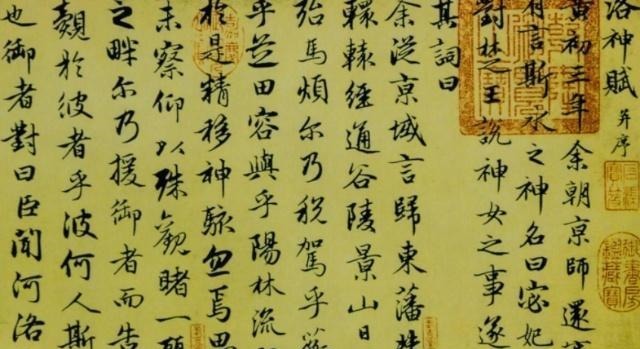 洛神賦 并序
黄初三年余朝京師還
有言斯水之神名曰宓妃
對楚王說神女之事遂
其詞曰
余從京域言歸東藩
轘轅經通谷陵景山日
殆馬煩尔乃稅駕乎蘅
乎芝田容與乎陽林流
於是精移神駭忽焉思
未察仰以殊觀睹一
之畔尔乃援御者而告
覿於彼者乎彼何人斯
也御者對曰臣聞河洛